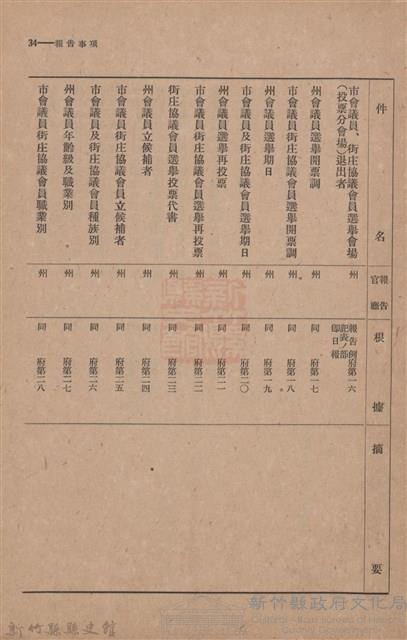 34——報告事項
件名
報告官廳
根據
摘要
市會議員、街庄協議會員選擧會場
(投票分會場)退出者
州
報告例府第一六
記表ノ部
卽日報
州會議員選擧開票調
州
同 府第一七
市會議員街庄協議會員選擧開票調
州
同 府第一八
州會議員選擧期日
州
同 府第一九
市會議員及街庄協議會員選擧期日
州
同 府第二〇
州會議員選擧再投票
州
同 府第二一
市會議員街庄協議會員選擧再投票
州
同 府第二二
街庄協議會員選擧投票代書
州
同 府第二三
州會議員立候補者
州
同 府第二四
市會議員街庄協議會員立候補者
州
同 府第二五
市會議員及街庄協議會員種族別
州
同 府第二六
州會議員年齡級及職業別
州
同 府第二七
市會議員街庄協議會員職業別
州
同 府第二八
新竹縣政府文化局
新竹縣縣史館